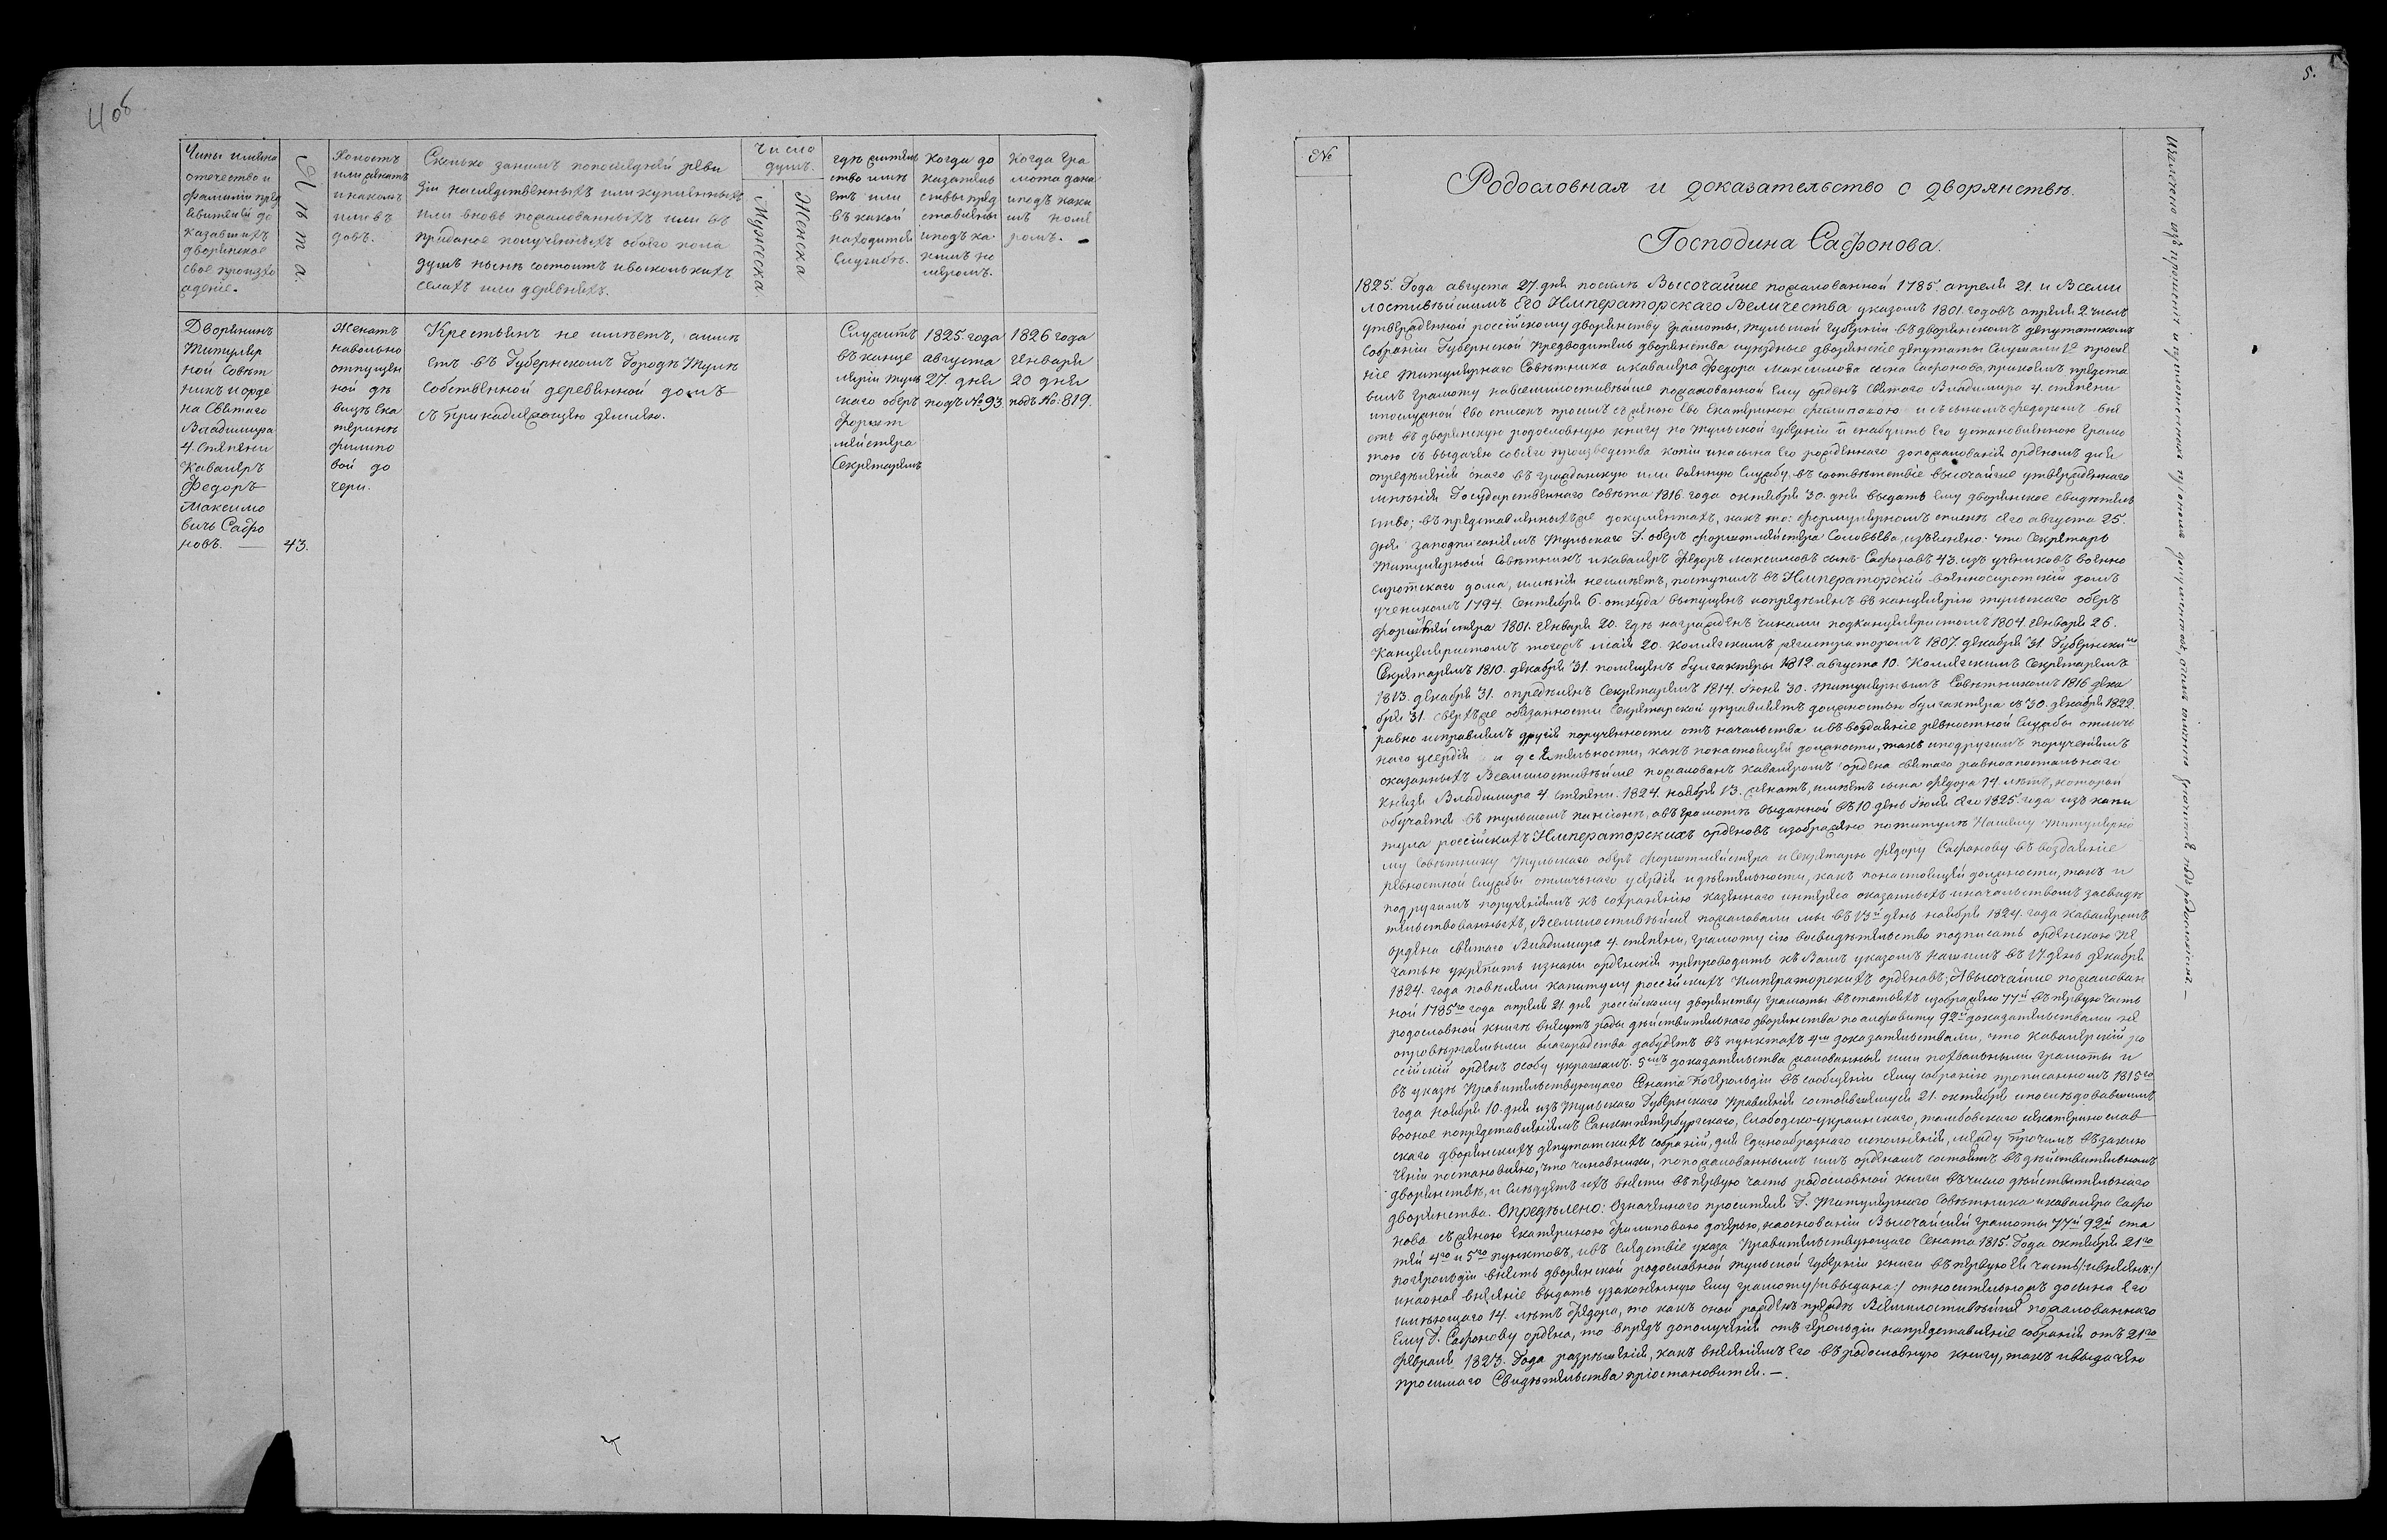 4об
Чины имяна
отечество и
фамилии пред
явителей до
казавшихъ
дворянское
свое происхо
ждение.
Лѣта.
Холостъ
или женатъ
и на комъ
или вдъ
довъ.
Сколько за нимъ по последней реви
зіи наследственныхъ или купленныхъ
или вновь пожалованныхъ или въ
приданое полученныхъ обоего пола
душъ нынѣ состоитъ и в сколькихъ
селахъ или деревняхъ.
Число
душъ.
Мужеска.
Женска
Где жител
ство имѣ
етъ или
въ какой
находится
службѣ.
Когда до
казатель
ствы пред
ставлены
и подъ ка
кимъ но
меромъ.
Когда гра
мота дана
и подъ каки
мъ номе
ромъ.
Дворянинъ
Титуляр
ной Совѣт
никъ и орде
на Святаго
Владимира
4. степени
Кавалеръ
Федоръ
Максимо
вичь Сафо
новъ. — 43.
Женатъ
на вольно
отпущен
ной дѣ
вицѣ Ека
теринѣ
Филипо
вой до
чери.
Крестьянъ не имѣетъ, а имѣ
етъ въ Губернскомъ Городѣ Тулѣ
собственной деревянной домъ
съ принадлежащею землею.
Служитъ
въ канце
ляріи Туль
скаго оберъ
форшт
мейстера
Секретаремъ
1825. года
августа
27. дня
подъ №93.
1826 года
Генваря
20 дня
подъ №: 819.
5.
№
Родословная и доказательство о дворянствѣ.
Господина Сафонова.
1825. Года августа 27. дня по силѣ Высочайше пожалованной 1785. апреля 21. и Всеми
лостивѣйшимъ Его Императорскаго Величества указомъ 1801. годовъ апреля 2 числъ
утвержденной россійскому дворянству грамоты, Тульской Губерніи въ дворянскомъ депутатскомъ
Собраніи Губернской Предводитель дворянства и уѣздные дворянскіе депутаты Слушали 1е проше
ніе Титулярнаго Совѣтника и кавалера Федора Максимова сына Сафонова, при коемъ предста
вилъ Грамоту на всемилостивѣйше пожалованной Ему орденъ Святаго Владимира 4. степени
и послужной Его списокъ проситъ съ женою Его Екатериною Филиповою и съ сыномъ Федоромъ вне
сть въ дворянскую родословную книгу по Тульской губерніи и снабдить Его установленною Грамо
тою съ выдачею со всего производства копіи и на сына Его рожденнаго до пожалованія орденомъ для
определенія онаго въ гражданскую или военную Службу, въ соотвѣтствіе высочайше утвержденнаго
мнѣнія Государственнаго Совѣта 1816. года октября 30. дня выдать Ему дворянское свидѣтель
ство; въ представленныхъ же документахъ, какъ то: формулярномъ спискѣ Его августа 25.
дня за подписаніемъ Тульскаго Г. оберъ форштмейстера Соловьева, изъяснено: что Секретарь
Титулярный Совѣтникъ и кавалеръ Федоръ Максимовъ сынъ Сафоновъ 43. изъ учениковъ военно
сиротскаго дома, имѣнія не имѣетъ, поступилъ въ Императорскій военносиротскій домъ
ученикомъ 1794. Сентября 6. откуда выпущенъ и опредѣленъ въ канцелярію Тульскаго оберъ
форштмейстера 1801. Генваря 20. гдѣ награжденъ чинами подканцеляристомъ 1804. Генваря 26.
Канцеляристомъ тогожъ маія 20. Коллежскимъ регистраторомъ 1807. декабря 31. Губернским
Секретаремъ 1810. декабря 31. помещенъ бухгалтеры 1812. августа 10. Коллежскимъ Секретаремъ
1813. декабря 31. опредѣленъ Секретаремъ 1814. Іюня 30. Титулярнымъ Совѣтникомъ 1816 дека
бря 31. сверхъ же обязанности Секретарской управляетъ должностью бухгалтера съ 30. декабря 1822.
равно исправлялъ другія порученности отъ начальства и въ воздаяніе ревностной Службы отлич
наго усердія и деятельности, какъ по настоящей должности, такъ и по другимъ порученіямъ
оказанныхъ Всемилостивѣйше пожалованъ Кавалеромъ ордена святаго равноапостольнаго
князя Владимира 4. степени. 1824. ноября 13. женатъ, имѣетъ сына Федора 14 лѣтъ, которой
обучается въ тульскомъ пансионѣ, а въ грамотѣ выданной въ 10 день Іюля сего 1825. года изъ капи
тула россійскихъ Императорскихъ орденовъ изображено по титулѣ Нашему Титулярно
му Совѣтнику Тульскаго оберъ форштмейстера и Секретарю Федору Сафонову въ воздаяніе
ревностной Службы отличнаго усердія и дѣятельности, какъ по настоящей должности, такъ и
по другимъ порученіямъ къ сохраненію казеннаго интереса оказанныхъ и начальствомъ засвидѣ
тельствованныхъ, Всемилостивѣйше пожаловали мы въ 13й день ноября 1824. года Кавалеромъ
ордена святаго Владимира 4. степени, грамоту сію во свидѣтельство подписать орденскою пе
чатью укрепить и знаки орденскія препроводить къ Вамъ указомъ нашимъ въ 17. день декабря
1824. года повелели капитулу россійскихъ Императорскихъ орденовъ; А высочайше пожалован
ной 1785го года апреля 21. дня россійскому дворянству грамоты въ статьяхъ изображено 77й въ первую часть
родословной книги внесутъ роды дѣйствительнаго дворянства по алфавиту 92й доказательствами не
опровѣргаемыми благородства да будетъ въ пунктахъ 4м доказательствами, что кавалерскій ро
ссійскій орденъ особу украшалъ. 5мъ доказательства жалованныя или похвальными грамоты и
въ указѣ Правительствующаго Сената Погерольдіи въ сообщеніи сему собранію прописанномъ 1815го
года Ноября 10. дня изъ Тульскаго Губернскаго Правленія состоявшемуся 21. октября и последовавшимъ
во оное по представленіямъ Санктпетербургскаго, Слободско-украинскаго, тамбовскаго и екатеринослав
скаго дворянскихъ депутатскихъ собраній, для Единообразнаго исполненія, между прочимъ въ заклю
ченіи постановлено, что чиновники, по пожалованнымъ имъ орденамъ состоятъ въ дѣйствительномъ
дворянствѣ, и слѣдуетъ ихъ внести въ первую часть родословной книги въ число дѣйствительнаго
дворянства. Опредѣлено: Означеннаго просителя Г. Титулярнаго Совѣтника и кавалера Сафо
нова съ женою Екатериною Филиповою дочерью, на основаніи Высочайшей грамоты 77й 92й ста
тей 4го и 5го пунктовъ, и въ следствіе указа Правительствующаго Сената 1815. Года октября 21го
по герольдіи внесть дворянской родословной Тульской Губерніи книги въ первую Ея часть /:и внесенъ:/
и на оное внесеніе выдать узаконенную Ему грамоту /:и выдана:/ относительножъ до сына Его
имѣющаго 14. лѣтъ Федора, то какъ оной рожденъ прежде Всемилостивѣйше пожалованнаго
Ему Г. Сафонову ордена, то впредь до полученія отъ Герольдіи на представленіе собранія отъ 21го
февраля 1823. Года разрѣшенія, какъ внесеніемъ Его въ родословную книгу, такъ и выдачею
просимаго Свидѣтельства пріостановится. —.